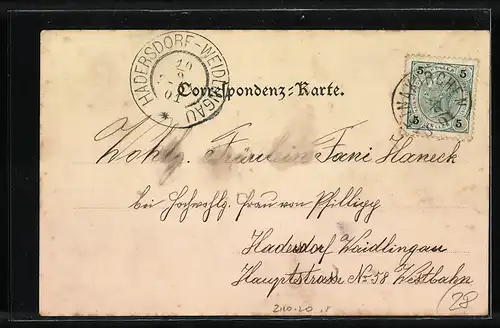 HADERSDORF-WEIDLINGAU
10
9
01
Correspondenz-Karte.
5 5
5 5
Wohlg. Fräulein Fani Haneck
bei Hochwohlg. Frau von Phillipp
Hadersdorf Waidlingau
Hauptstrasse No 58 Westbahn
28